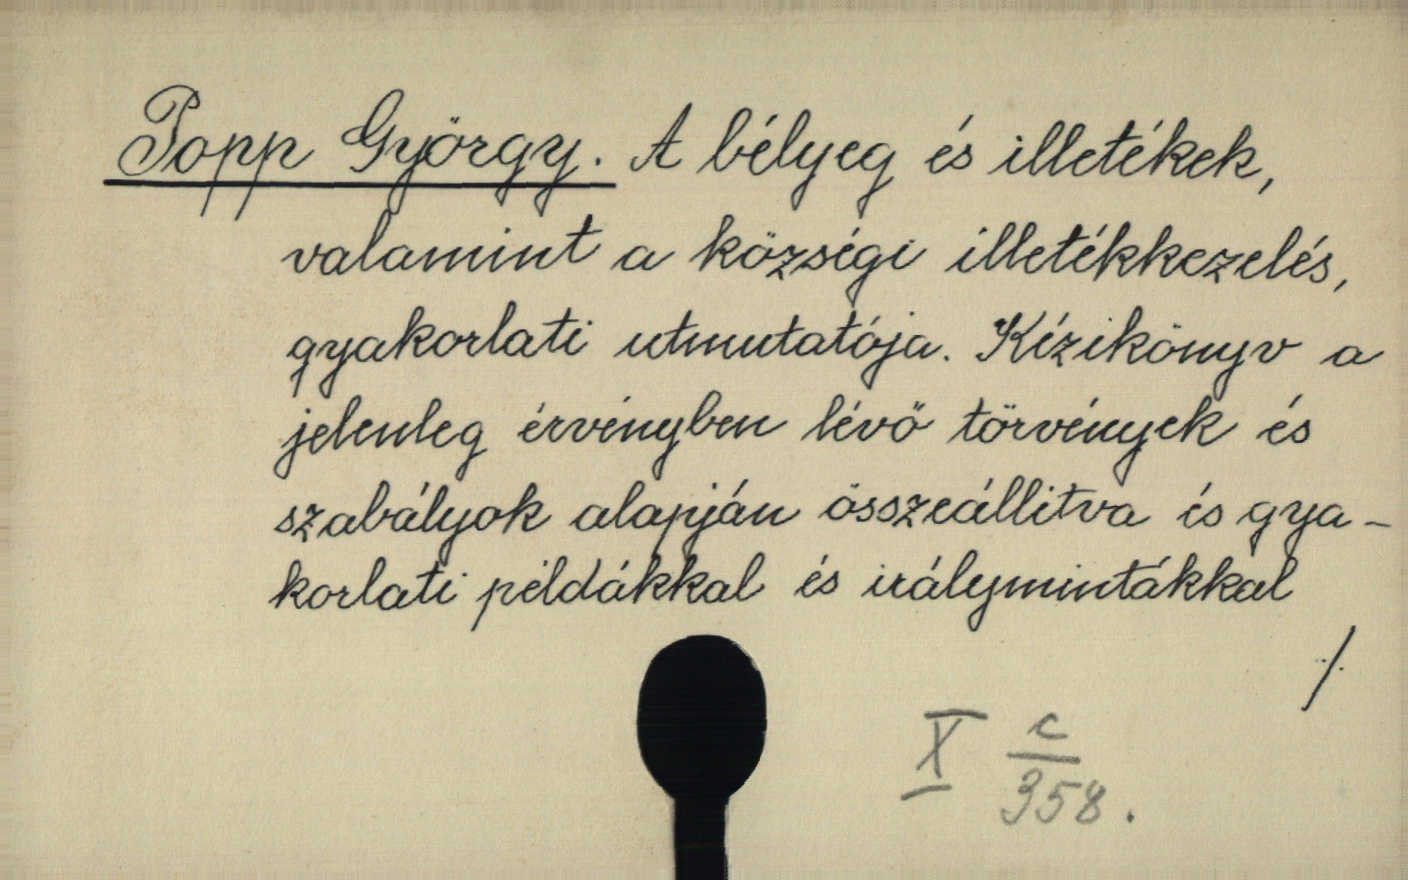 Popp György. A bélyeg és illetékek,
valamint a községi illetékkezelés,
gyakorlati utmutatója. Kézikönyv a
jelenleg érvényben lévő törvények és
szabályok alapján összeállitva és gya-
korlati példákkal és irálymintákkal
./.
X c/358.